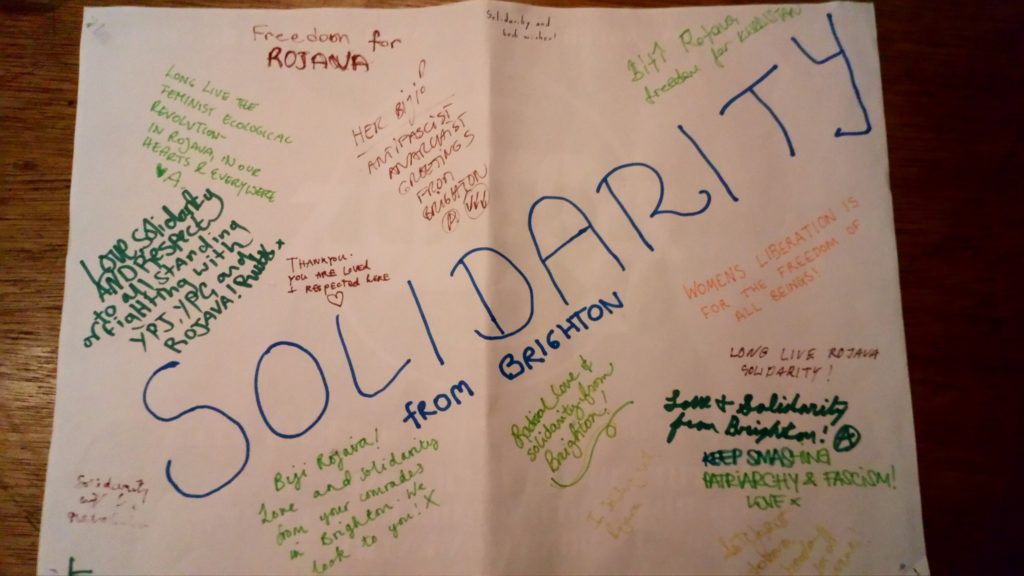 Freedom for
ROJAVA
Solidarity and
best wishes!
BIJI Rojava
freedom for KURDISTAN
LONG LIVE THE
FEMINIST ECOLOGICAL
REVOLUTION-
IN ROJAVA, IN OUR
HEARTS & EVERYWHERE
A.
HER BIJI!
ANTIFASCIST
ANARCHIST
GREETINGS
FROM
BRIGHTON
LOVE SOLIDARITY
AND RESPECT
to all standing
or fighting with
YPJ, YPG and
ROJAVA!
THANKYOU.
YOU ARE LOVED
& RESPECTED HERE
SOLIDARITY
FROM BRIGHTON
WOMENS LIBERATION IS
FOR THE FREEDOM OF
ALL BEINGS!
LONG LIVE ROJAVA
SOLIDARITY!
Love & Solidarity
from Brighton!
KEEP SMASHING
PATRIARCHY & FASCISM!
LOVE x
Radical Love &
solidarity from
Brighton!
Biji Rojava!
Love and solidarity
from your comrades
in Brighton. We
look to you! X
Solidarity